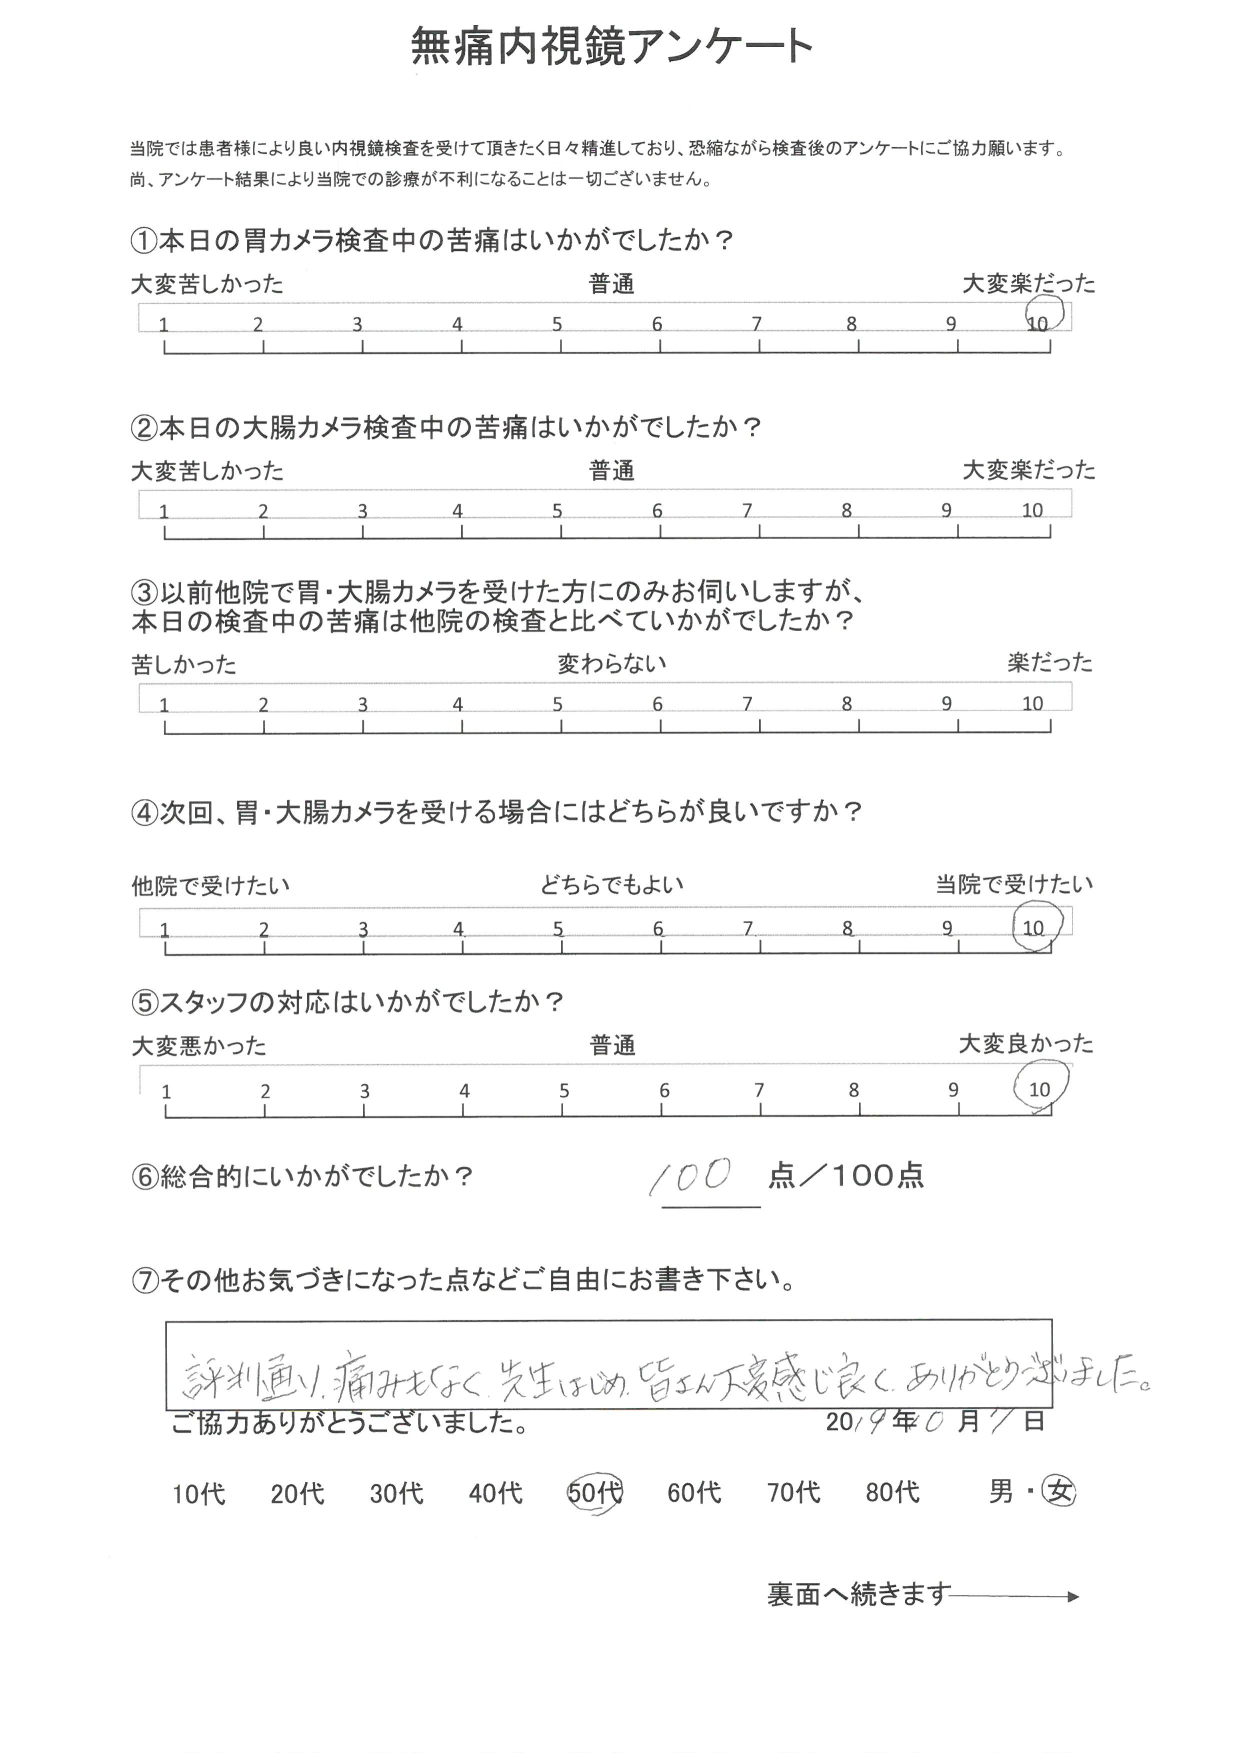 無痛内視鏡アンケート
当院では患者様により良い内視鏡検査を受けて頂きたく日々精進しており、恐縮ながら検査後のアンケートにご協力願います。
尚、アンケート結果により当院での診療が不利になることは一切ございません。
①本日の胃カメラ検査中の苦痛はいかがでしたか？
大変苦しかった 普通 大変楽だった
1 2 3 4 5 6 7 8 9 10
②本日の大腸カメラ検査中の苦痛はいかがでしたか？
大変苦しかった 普通 大変楽だった
1 2 3 4 5 6 7 8 9 10
③以前他院で胃・大腸カメラを受けた方にのみお伺いしますが、
本日の検査中の苦痛は他院の検査と比べていかがでしたか？
苦しかった 変わらない 楽だった
1 2 3 4 5 6 7 8 9 10
④次回、胃・大腸カメラを受ける場合にはどちらが良いですか？
他院で受けたい どちらでもよい 当院で受けたい
1 2 3 4 5 6 7 8 9 10
⑤スタッフの対応はいかがでしたか？
大変悪かった 普通 大変良かった
1 2 3 4 5 6 7 8 9 10
⑥総合的にいかがでしたか？ 100 点／100点
⑦その他お気づきになった点などご自由にお書き下さい。
評判通り、痛みもなく、先生はじめ、皆さん大変感じ良く、ありがとうございました。
ご協力ありがとうございました。 2019年 月7日
10代 20代 30代 40代 50代 60代 70代 80代 男・女
裏面へ続きます